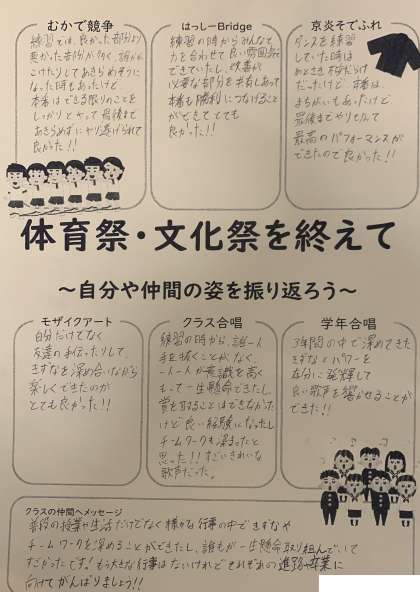 むかで競争
練習では、良かった部分より
悪かった部分が多く、誰かが
こけたりしてあきらめそうに
なった時もあったけど、
本番はできる限りのことを
しっかりとやって最後まで
あきらめずにやり遂げられて
良かった!!
はっしーBridge
練習の時からみんなで
力を合わせて良い雰囲気で
できていたし、改善が
必要な部分を共有しあって
本番も勝利につなげること
ができてとても
良かった!!
京炎そでふれ
ダンスを練習
していた時は
だったけど、本番は
まちがいもあったけど、
最後までやりきって
最高のパフォーマンスが
できたので良かった!!
体育祭・文化祭を終えて
〜自分や仲間の姿を振り返ろう〜
モザイクアート
自分だけでなく
友達の手伝ったりして、
きずなを深め合いながら
楽しくできたのが
とても良かった!!
クラス合唱
練習の時から、誰一人
手を抜くことがなく、
一人一人が意識を高く
もって一生懸命できたし、
賞を取ることはできなかった
けど良い経験になったし
チームワークも深まったと
思った!!すごいきれいな
歌声だった。
学年合唱
3年間の中で深めてきた
きずなとパワーを
存分に発揮して
良い歌声を響かせることが
できた!!
クラスの仲間へメッセージ
普段の授業や生活だけでなく様々な行事の中できずなや
チームワークを深めることができたし、誰もが一生懸命取り組んでいて
すごかったです!もう大きな行事はないけれどそれぞれの進路や卒業に
向けてがんばりましょう!!